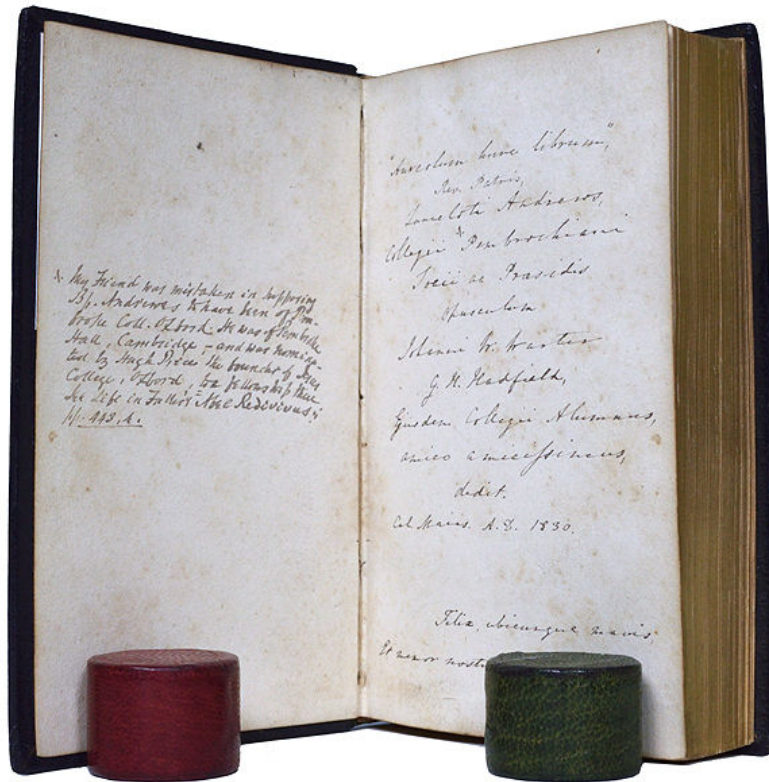 * My Friend was mistaken in supposing
Bp. Andrewes to have been of Pem-
broke Coll. Oxford. He was of Pembroke
Hall, Cambridge, – and was nomina-
ted by Hugh Price the founder of Jesus
College, Oxford, to a fellowship there
See Life in Fuller's Abel Redevivus
pp. 443, 4.
"Aureolum hunc librum",
Rev. Patris,
Lanceloti Andrews,
Collegii * Pembrochiani
Socii ac Præsidis
opusculum
Johanni W. Warter
G. H. Hadfield,
Ejusdem Collegii Alumnus,
amico amicissimus,
dedit.
Cal Maias. A.D. 1830.
Felix, ubicunque mavis,
Et memor